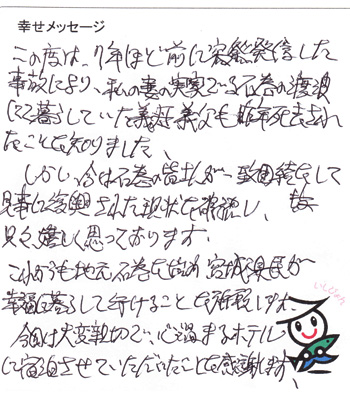 幸せメッセージ
この度は、7年ほど前に発信した
事故により、私の妻の実家である石巻の渡波
にて暮らしていた義母義父も昨年死去され
たことを知りました、
しかし、今は石巻の皆さんが一致団結をして
見事に復興された現状を拝視し、
嬉しく思っております.
これからも地元石巻を始め宮城県民が
幸福に暮らして行けることを祈願します、
今回は大変親切で、心温まるホテル
に宿泊させていただいたことを感謝します、